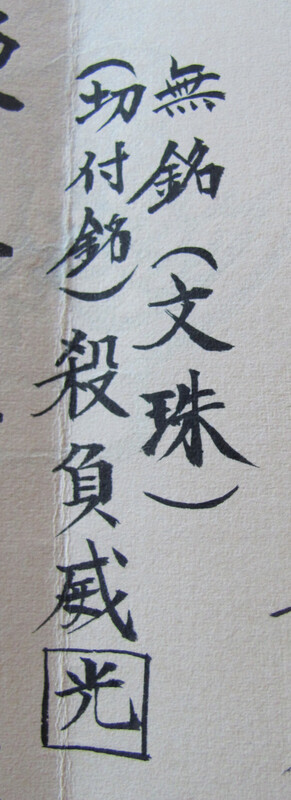 無銘(文珠)
(切付銘)殺負威光